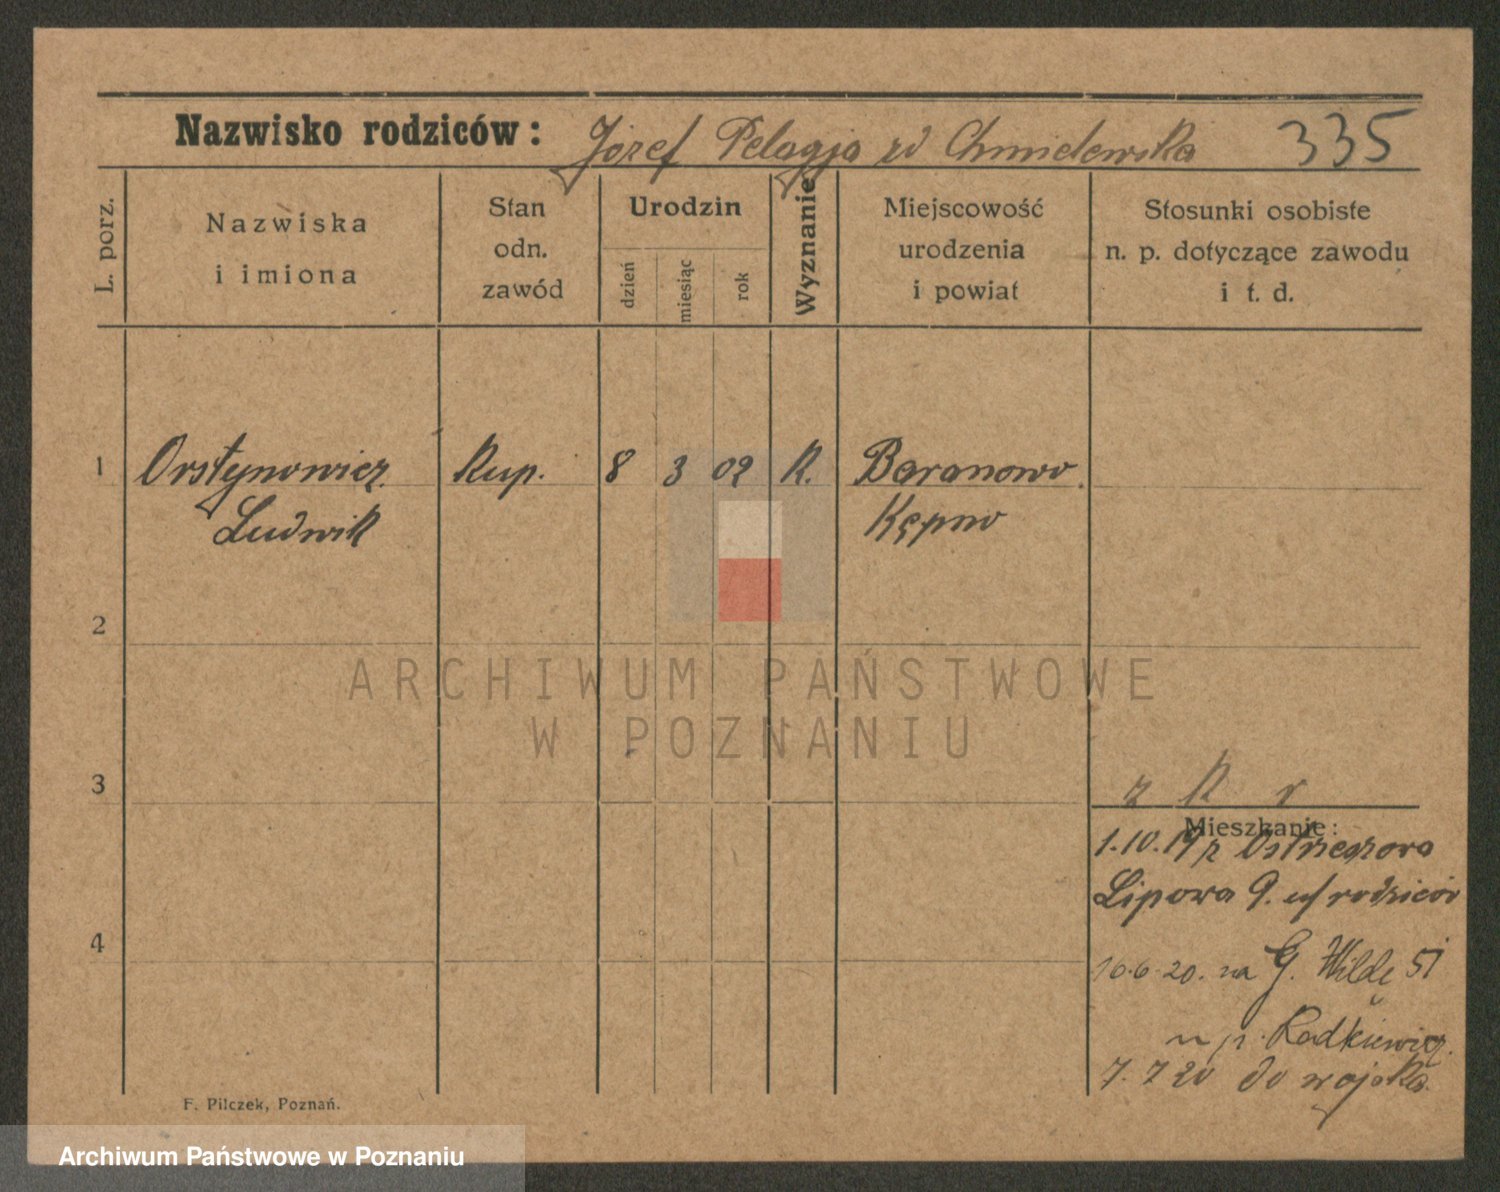 Nazwisko rodziców: Józef Pelagja zd Chmielewska 335
L. porz.
Nazwiska
i imiona
Stan
odn.
zawód
Urodzin
dzień
miesiąc
rok
Wyznanie
Miejscowość
urodzenia
i powiat
Stosunki osobiste
n. p. dotyczące zawodu
i t. d.
1 Orstynowicz Kup. 8 3 02 K. Baranowo
Ludwik Kępno
2
ARCHIWUM PAŃSTWOWE
W POZNANIU
3
z K r
Mieszkanie:
1.10.19 z
Lipowa 9. rodziców
4
16.6.20. na G. Wilde 51
u p. Radkiewicz
7.7 20 do wojska.
F. Pilczek, Poznań.
Archiwum Państwowe w Poznaniu